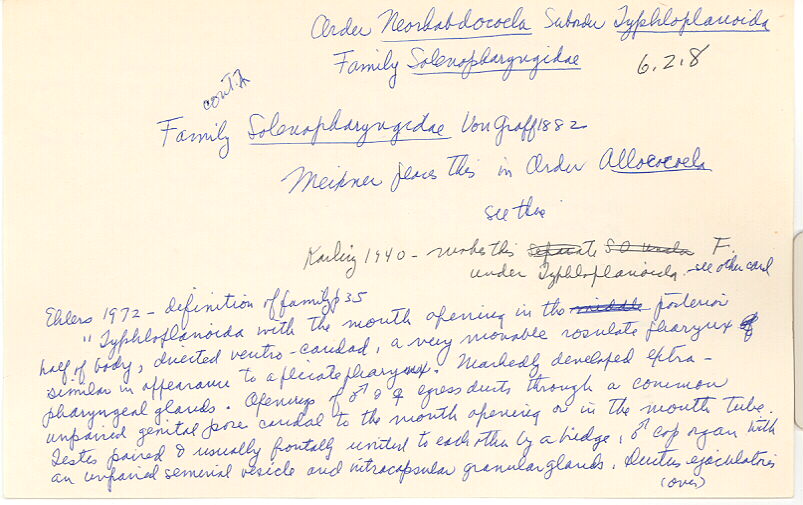 Order Neorhabdocoela Suborder Typhloplanoida
Family Solenopharyngidae 6.2.8
cont.
Family Solenopharyngidae Von Graff 1882
Meixner places this in Order Allococoela
see this
Karling 1940 - makes this separate S.O. under F.
under Typhloplanoida - see other card
Ehlers 1972 - definition of family p 35
" Typhloplanoida with the mouth opening in the middle posterior
half of body, directed ventro-caudad, a very movable rosulate pharynx
similar in appearance to a plicate pharynx. Markedly developed extra-
pharyngeal glands. Openings of ♂ & ♀ egress ducts through a common
unpaired genital pore caudal to the mouth opening or in the mouth tube.
Testes paired & usually frontally united to each other by a bridge, ♂ cop organ with
an unpaired seminal vesicle and intracapsular granular glands. Ductus ejaculatoris
(over)